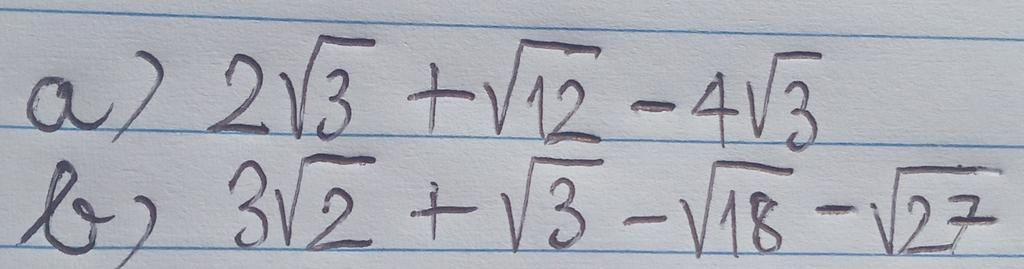 a) 2√3 + √12 - 4√3
b) 3√2 + √3 - √18 - √27